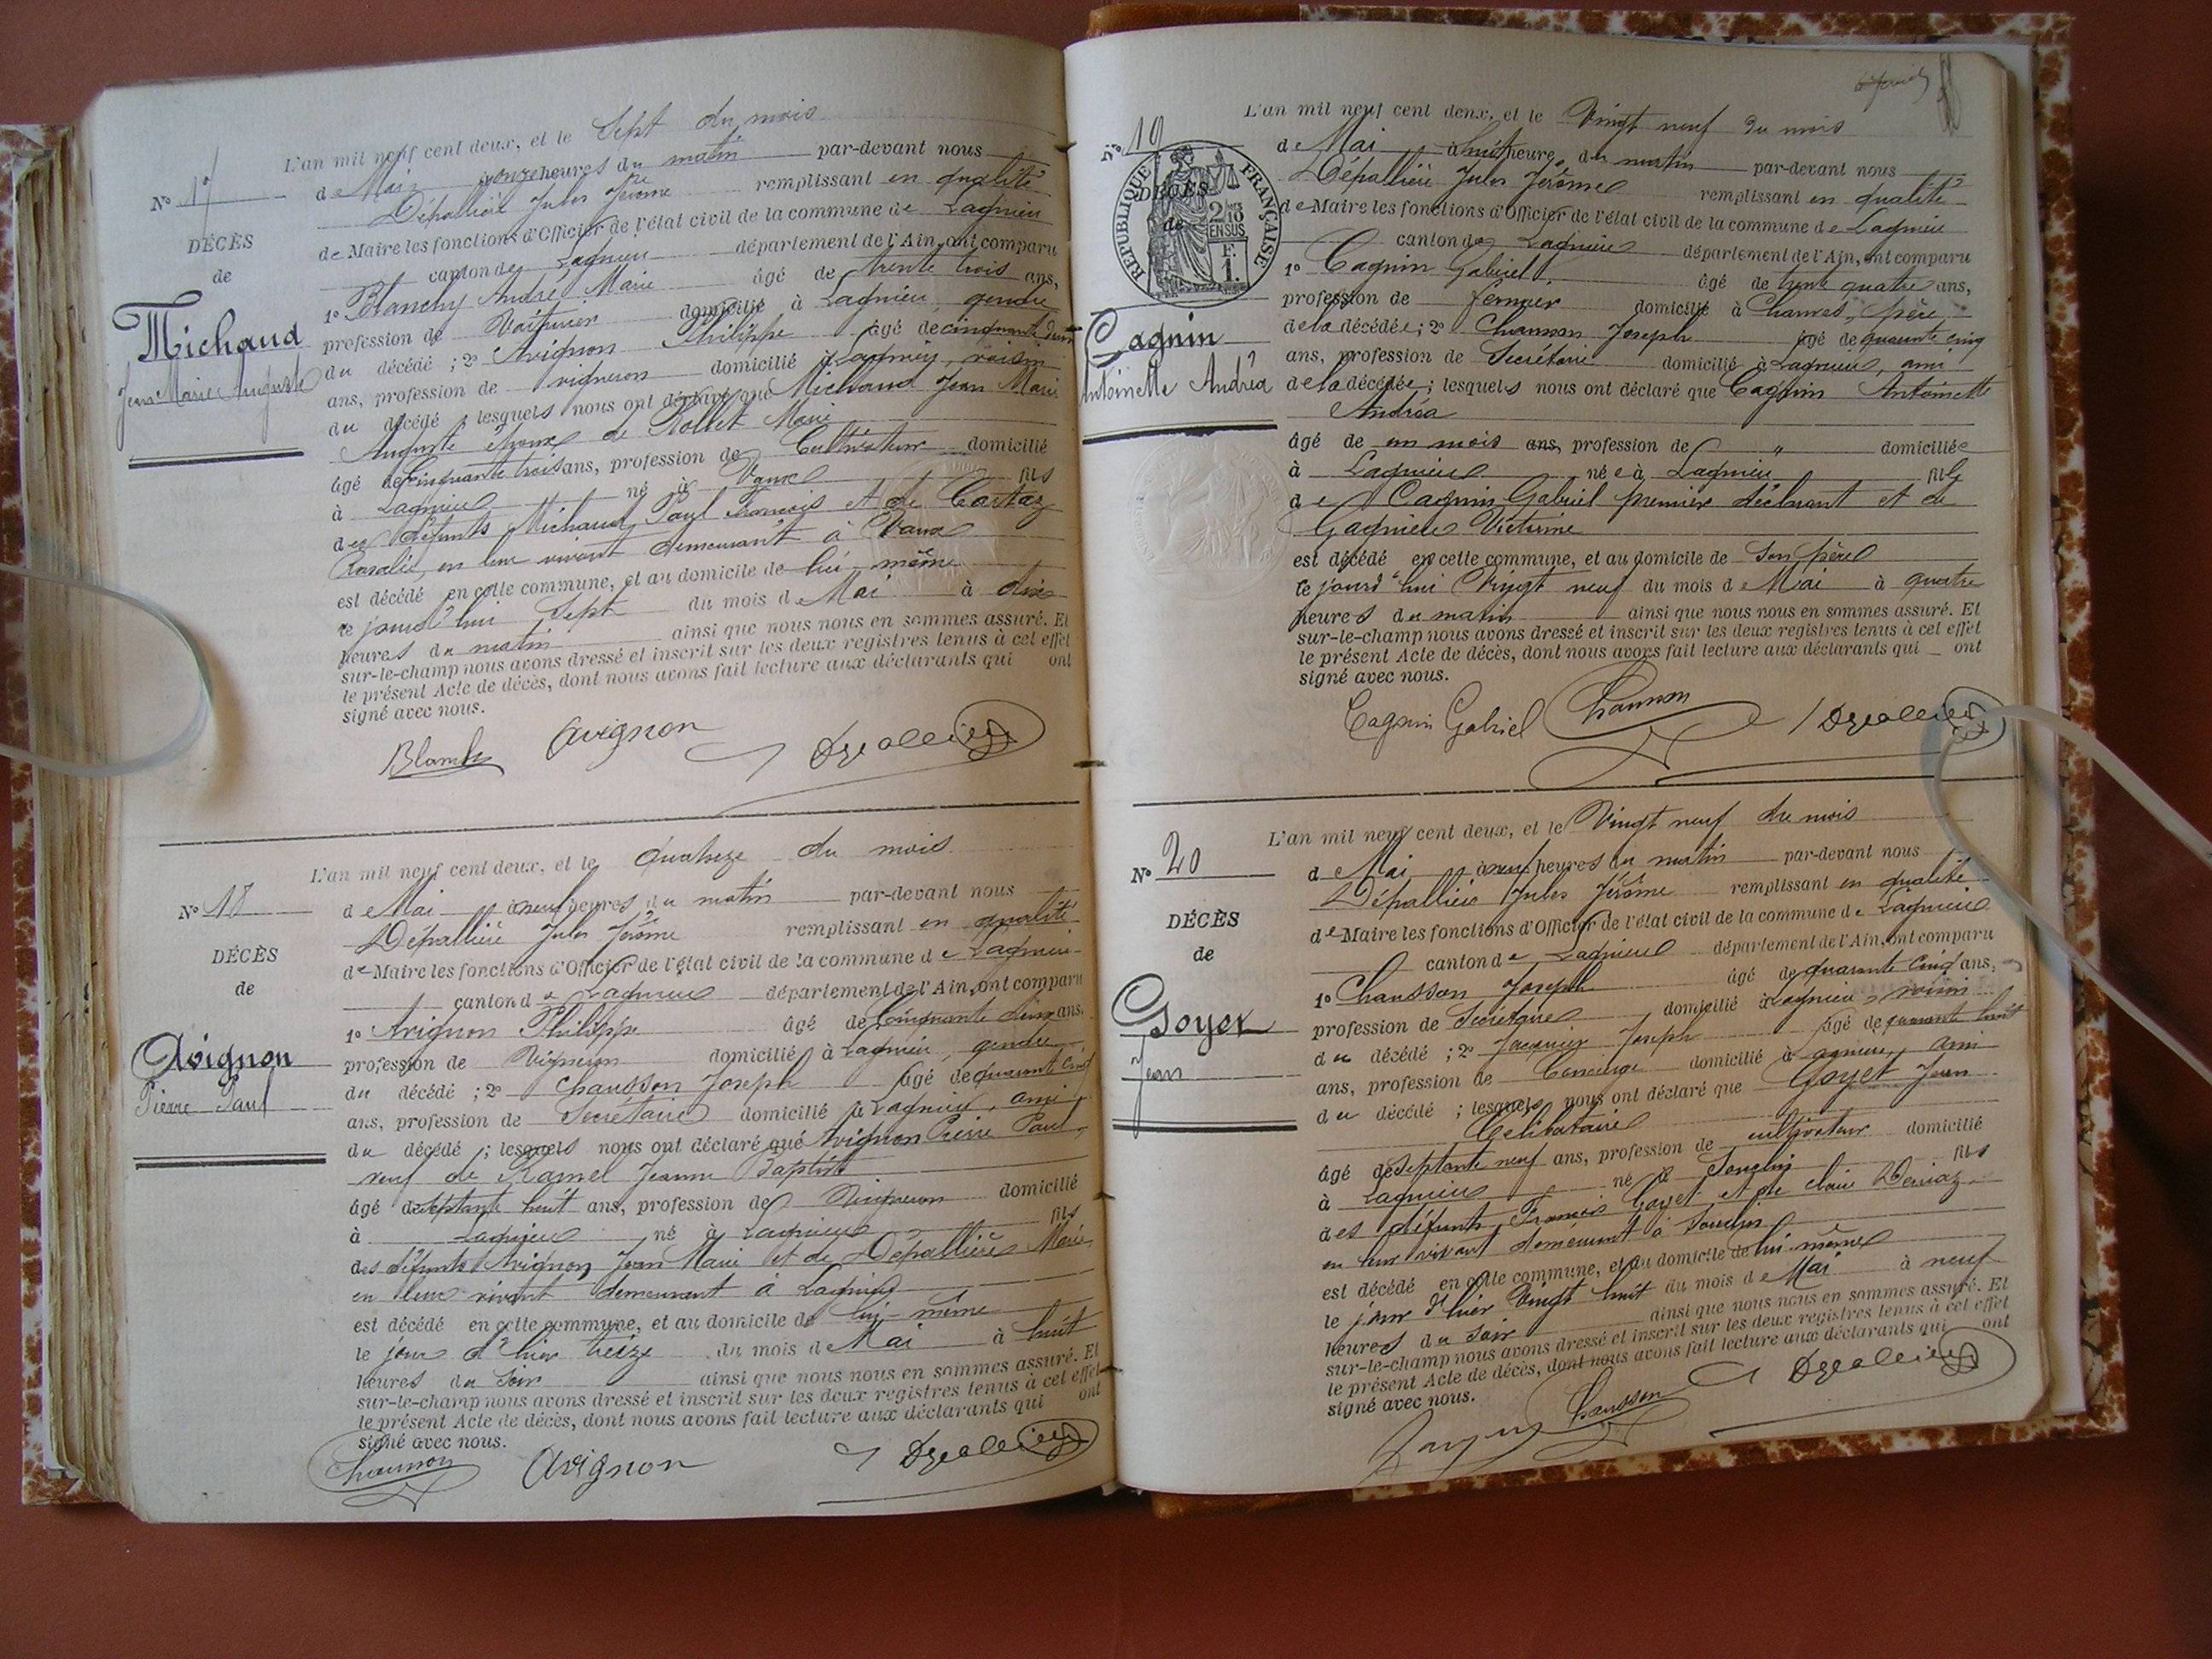 L'an mil neuf cent deux, et le Sept du mois
N° 17
de Mai à onze heures du matin par-devant nous
Dépallière Jules Jérôme remplissant en qualité
DÉCÈS
de Maire les fonctions d'Officier de l'état civil de la commune de Lagnieu
de
canton de Lagnieu département de l'Ain, ont comparu
Michaud
Jean Marie Auguste
1° Blanchy André Marie âgé de trente trois ans,
profession de Voiturier domicilié à Lagnieu, gendre
du décédé ; 2° Avignon Philippe âgé de cinquante deux
ans, profession de vigneron domicilié à Lagnieu, voisin
du décédé ; lesquels nous ont déclaré que Michaud Jean Marie
Auguste époux de Rollet Marie
âgé de Cinquante trois ans, profession de Cultivateur domicilié
à Lagnieu né à Vaux fils
des défunts Michaud Paul François et de Cartaz
Rosalie, en leur vivant demeurant à Vaux
est décédé en cette commune, et au domicile de lui-même
ce jourd'hui Sept du mois de Mai à dix
heures du matin ainsi que nous nous en sommes assuré. Et
sur-le-champ nous avons dressé et inscrit sur les deux registres tenus à cet effet
le présent Acte de décès, dont nous avons fait lecture aux déclarants qui ont
signé avec nous.
Avignon
L'an mil neuf cent deux, et le Quatorze du mois
N° 18
de Mai à neuf heures du matin par-devant nous
Dépallière Jules Jérôme remplissant en qualité
DÉCÈS
de Maire les fonctions d'Officier de l'état civil de la commune de Lagnieu
de
canton de Lagnieu département de l'Ain, ont comparu
Avignon
Pierre Paul
1° Avignon Philippe âgé de Cinquante deux ans,
profession de Vigneron domicilié à Lagnieu, gendre
du décédé ; 2° Chausson Joseph âgé de quarante cinq
ans, profession de Secrétaire domicilié à Lagnieu, ami
du décédé ; lesquels nous ont déclaré que Avignon Pierre Paul,
veuf de Ramel Jeanne Baptiste
âgé de septante huit ans, profession de Vigneron domicilié
à Lagnieu né à Lagnieu fils
des défunts Avignon Jean Marie et de Dépallière Marie
en leur vivant demeurant à Lagnieu
est décédé en cette commune, et au domicile de lui-même
le jour d'hier treize du mois de Mai à huit
heures du soir ainsi que nous nous en sommes assuré. Et
sur-le-champ nous avons dressé et inscrit sur les deux registres tenus à cet effet
le présent Acte de décès, dont nous avons fait lecture aux déclarants qui ont
signé avec nous.
Chausson Avignon
L'an mil neuf cent deux, et le Vingt neuf du mois
N° 19
RÉPUBLIQUE FRANÇAISE
2/10 EN SUS
F. 1.
DÉCÈS
de
Cagnin
Antoinette Andréa
de Mai à huit heures du matin par-devant nous
Dépallière Jules Jérôme remplissant en qualité
de Maire les fonctions d'Officier de l'état civil de la commune de Lagnieu
canton de Lagnieu département de l'Ain, ont comparu
1° Cagnin Gabriel âgé de trente quatre ans,
profession de fermier domicilié à Chamves, père
de la décédée ; 2° Chausson Joseph âgé de quarante cinq
ans, profession de Secrétaire domicilié à Lagnieu, ami
de la décédée ; lesquels nous ont déclaré que Cagnin Antoinette
Andréa
âgé de un mois ans, profession de " domiciliée
à Lagnieu née à Lagnieu fille
de Cagnin Gabriel premier déclarant et de
Victorine
est décédé en cette commune, et au domicile de son père
ce jourd'hui Vingt neuf du mois de Mai à quatre
heures du matin ainsi que nous nous en sommes assuré. Et
sur-le-champ nous avons dressé et inscrit sur les deux registres tenus à cet effet
le présent Acte de décès, dont nous avons fait lecture aux déclarants qui ont
signé avec nous.
Cagnin Gabriel Chausson
L'an mil neuf cent deux, et le Vingt neuf du mois
N° 20
de Mai à neuf heures du matin par-devant nous
Dépallière Jules Jérôme remplissant en qualité
DÉCÈS
de Maire les fonctions d'Officier de l'état civil de la commune de Lagnieu
de
canton de Lagnieu département de l'Ain, ont comparu
Goyet
Jean
1° Chausson Joseph âgé de quarante cinq ans,
profession de Secrétaire domicilié à Lagnieu, voisin
du décédé ; 2° Jacquier Joseph âgé de quarante huit
ans, profession de Concierge domicilié à Lagnieu, ami
du décédé ; lesquels nous ont déclaré que Goyet Jean
Célibataire
âgé de septante neuf ans, profession de cultivateur domicilié
à Lagnieu né à Souclin fils
des défunts François Goyet et de Claire
en leur vivant demeurant à Souclin
est décédé en cette commune, et au domicile de lui-même
le jour d'hier Vingt huit du mois de Mai à neuf
heures du soir ainsi que nous nous en sommes assuré. Et
sur-le-champ nous avons dressé et inscrit sur les deux registres tenus à cet effet
le présent Acte de décès, dont nous avons fait lecture aux déclarants qui ont
signé avec nous.
Chausson